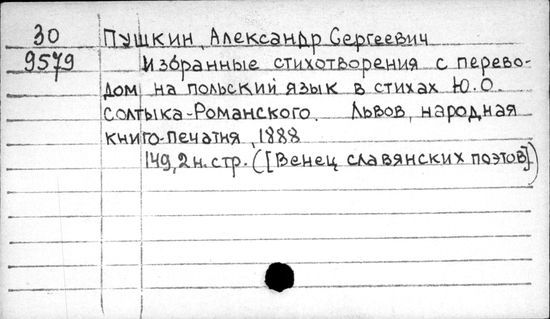 30 Пушкин, Александр Сергеевич
9579 Избранные стихотворения с перево-
дом на польский язык в стихах Ю.О.
Солтыка-Романского. Львов, народная
книго-печатня, 1888
149,2н.стр. ([Венец славянских поэтов])